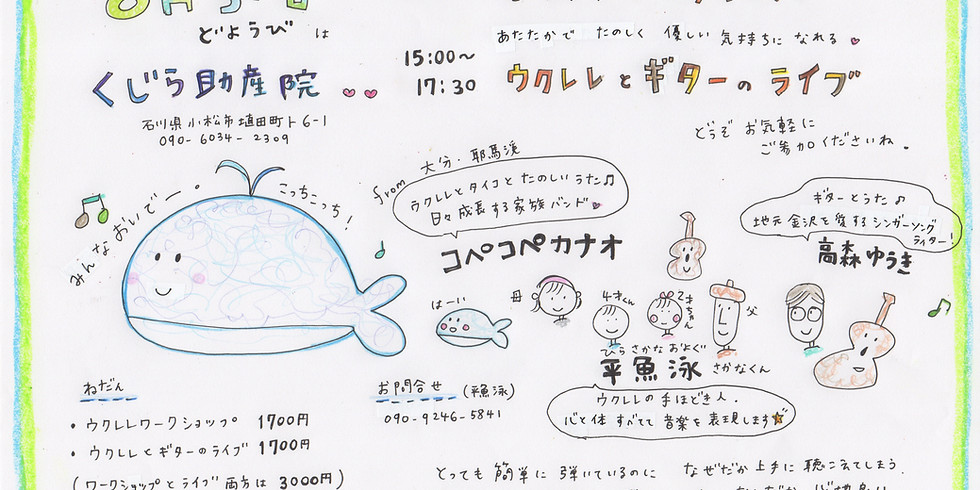 どようび は
くじら助産院
石川県小松市埴田町ト6-1
090-6034-2309
あたたかで たのしく 優しい 気持ちに なれる
15:00〜
17:30
ウクレレとギターのライブ
どうぞ お気軽に
ご参加くださいね。
みんなおいでー。
こっちこっち!
from 大分・耶馬渓
ウクレレとタイコと たのしいうた♫
日々成長する家族バンド
コペコペカナオ
ギターとうた♪
地元金沢を愛するシンガーソング
ライター!
高森ゆうき
はーい
母
4才くん
2才ちゃん
父
ひらさかなおよぐ
平魚泳 さかなくん
ウクレレの手ほどき人.
心と体 すべてで 音楽を表現します
ねだん
・ウクレレワークショップ 1700円
・ウクレレとギターのライブ 1700円
(ワークショップとライブ両方は 3000円)
お問合せ (平魚泳)
090-9246-5841
とっても 簡単に 弾いているのに なぜだか上手に 聴こえてしまう.